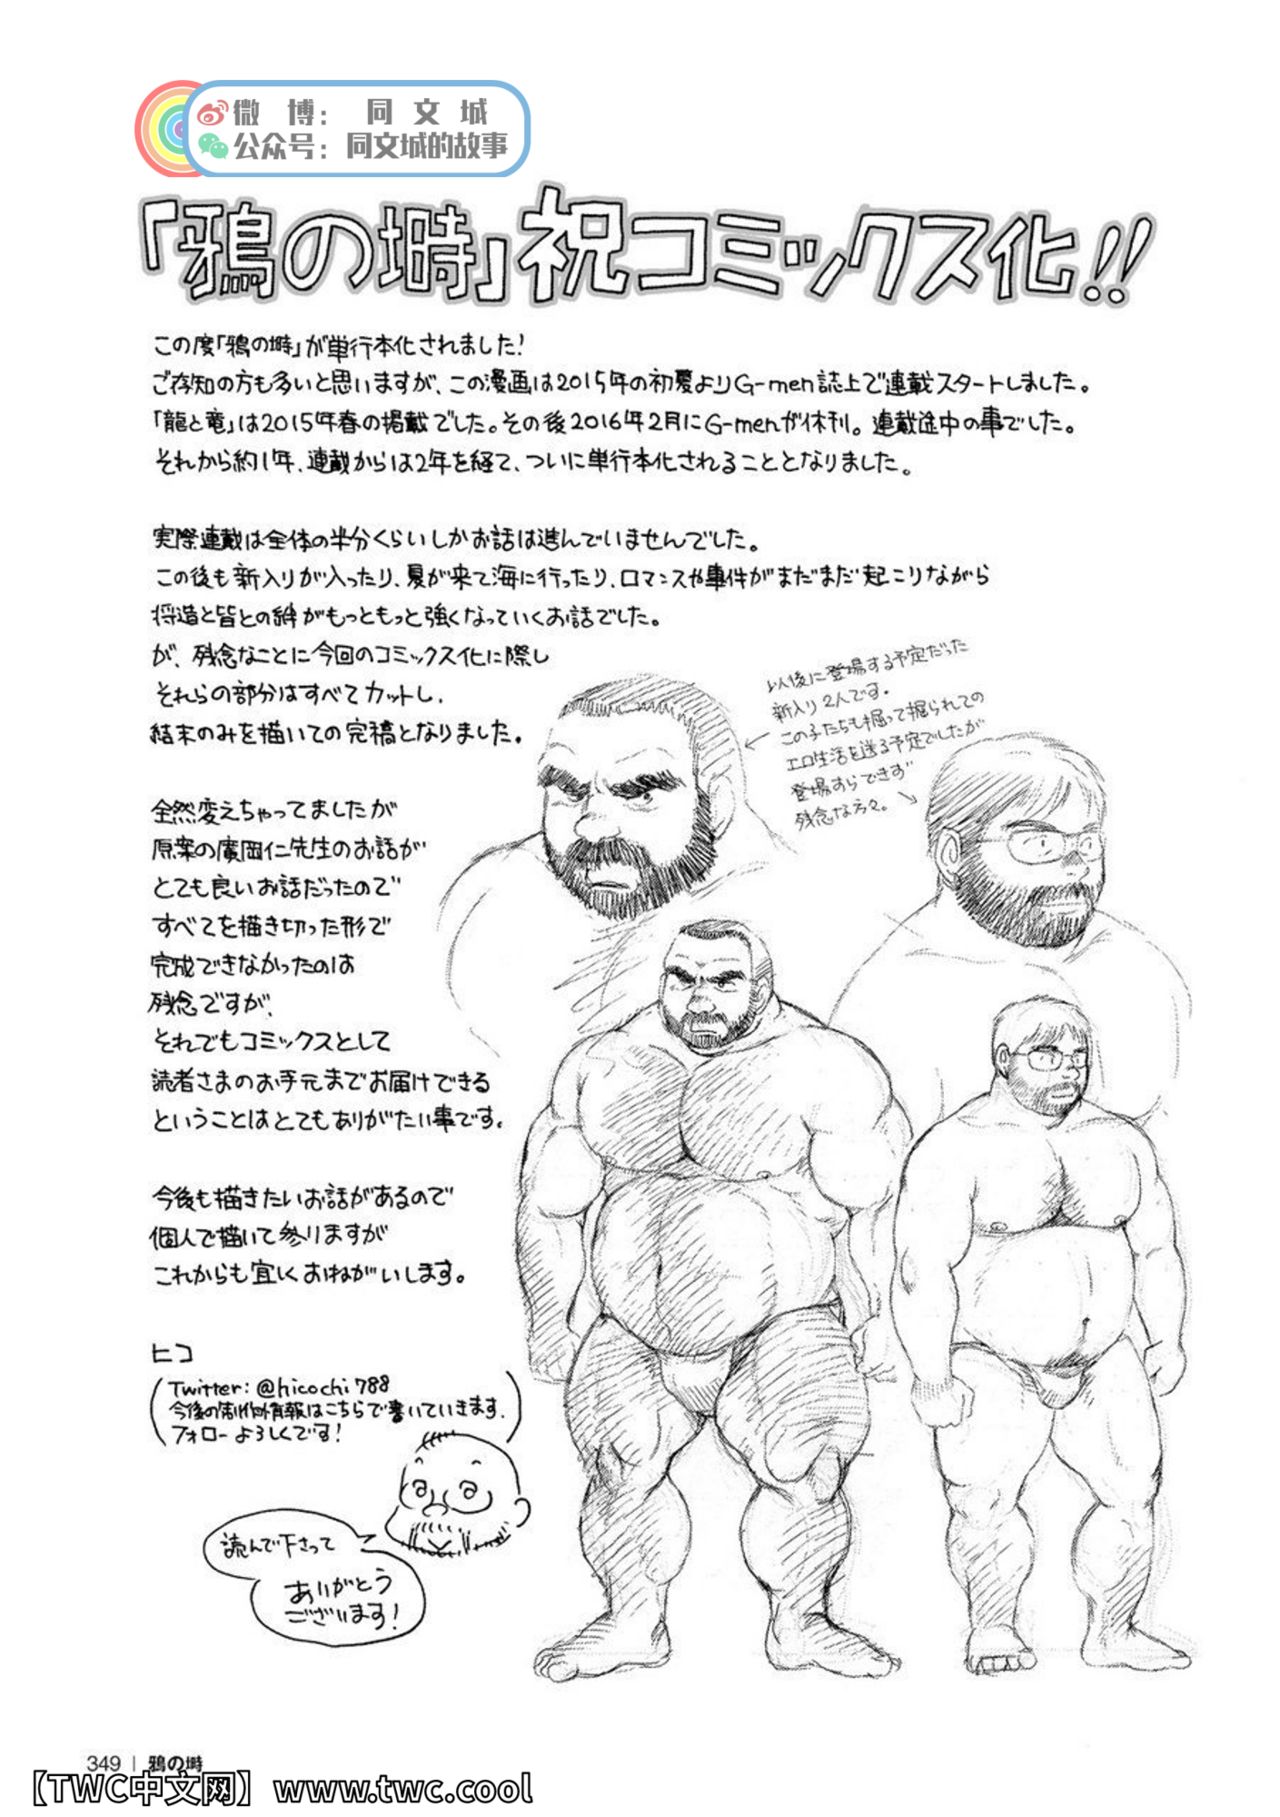 微博：同文城
公众号：同文城的故事
「鴉の塒」祝コミックス化!!
この度「鴉の塒」が単行本化されました!
ご存知の方も多いと思いますが、この漫画は2015年の初夏よりG-men誌上で連載スタートしました。
「龍と竜」は2015年春の掲載でした。その後2016年2月にG-menが休刊。連載途中の事でした。
それから約1年、連載からは2年を経て、ついに単行本化されることとなりました。
実際連載は全体の半分くらいしかお話は進んでいませんでした。
この後も新入りが入ったり、夏が来て海に行ったり、ロマンスや事件がまだまだ起こりながら
将造と皆との絆がもっともっと強くなっていくお話でした。
が、残念なことに今回のコミックス化に際し
それらの部分はすべてカットし、
結末のみを描いての完稿となりました。
以後に登場する予定だった
新入り2人です。
この子たちも掘って掘られての
エロ生活を送る予定でしたが
登場すらできず
残念な方々。
全然変えちゃってましたが
原案の廣岡仁先生のお話が
とても良いお話だったので
すべてを描き切った形で
完成できなかったのは
残念ですが、
それでもコミックスとして
読者さまのお手元までお届けできる
ということはとてもありがたい事です。
今後も描きたいお話があるので
個人で描いて参りますが
これからも宜しくおねがいします。
ヒコ
(Twitter: @hicochi788
今後の制作情報はこちらで書いていきます。
フォローよろしくです!)
読んで下さって
ありがとう
ございます!
349 | 鴉の塒
【TWC中文网】 www.twc.cool